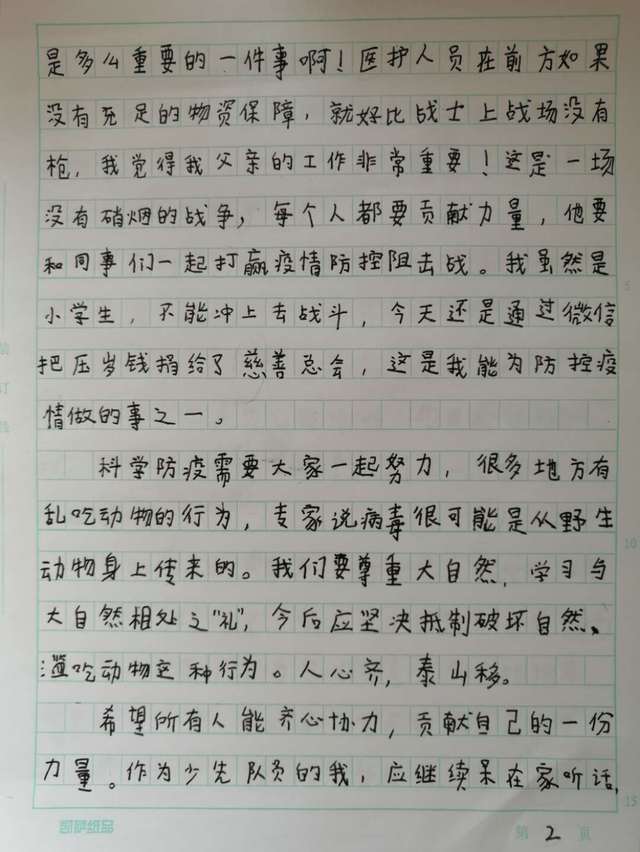 是多么重要的一件事啊！医护人员在前方如果
没有充足的物资保障，就好比战士上战场没有
枪，我觉得我父亲的工作非常重要！这是一场
没有硝烟的战争，每个人都要贡献力量，他要
和同事们一起打赢疫情防控阻击战。我虽然是
小学生，不能冲上去战斗，今天还是通过微信
把压岁钱捐给了慈善总会，这是我能为防控疫
情做的事之一。
科学防疫需要大家一起努力，很多地方有
乱吃动物的行为，专家说病毒很可能是从野生
动物身上传来的。我们要尊重大自然，学习与
大自然相处之“礼”，今后应坚决抵制破坏自然、
滥吃动物这种行为。人心齐，泰山移。
希望所有人能齐心协力，贡献自己的一份
力量。作为少先队员的我，应继续呆在家听话，
5
10
15
装
订
线
第 2 页